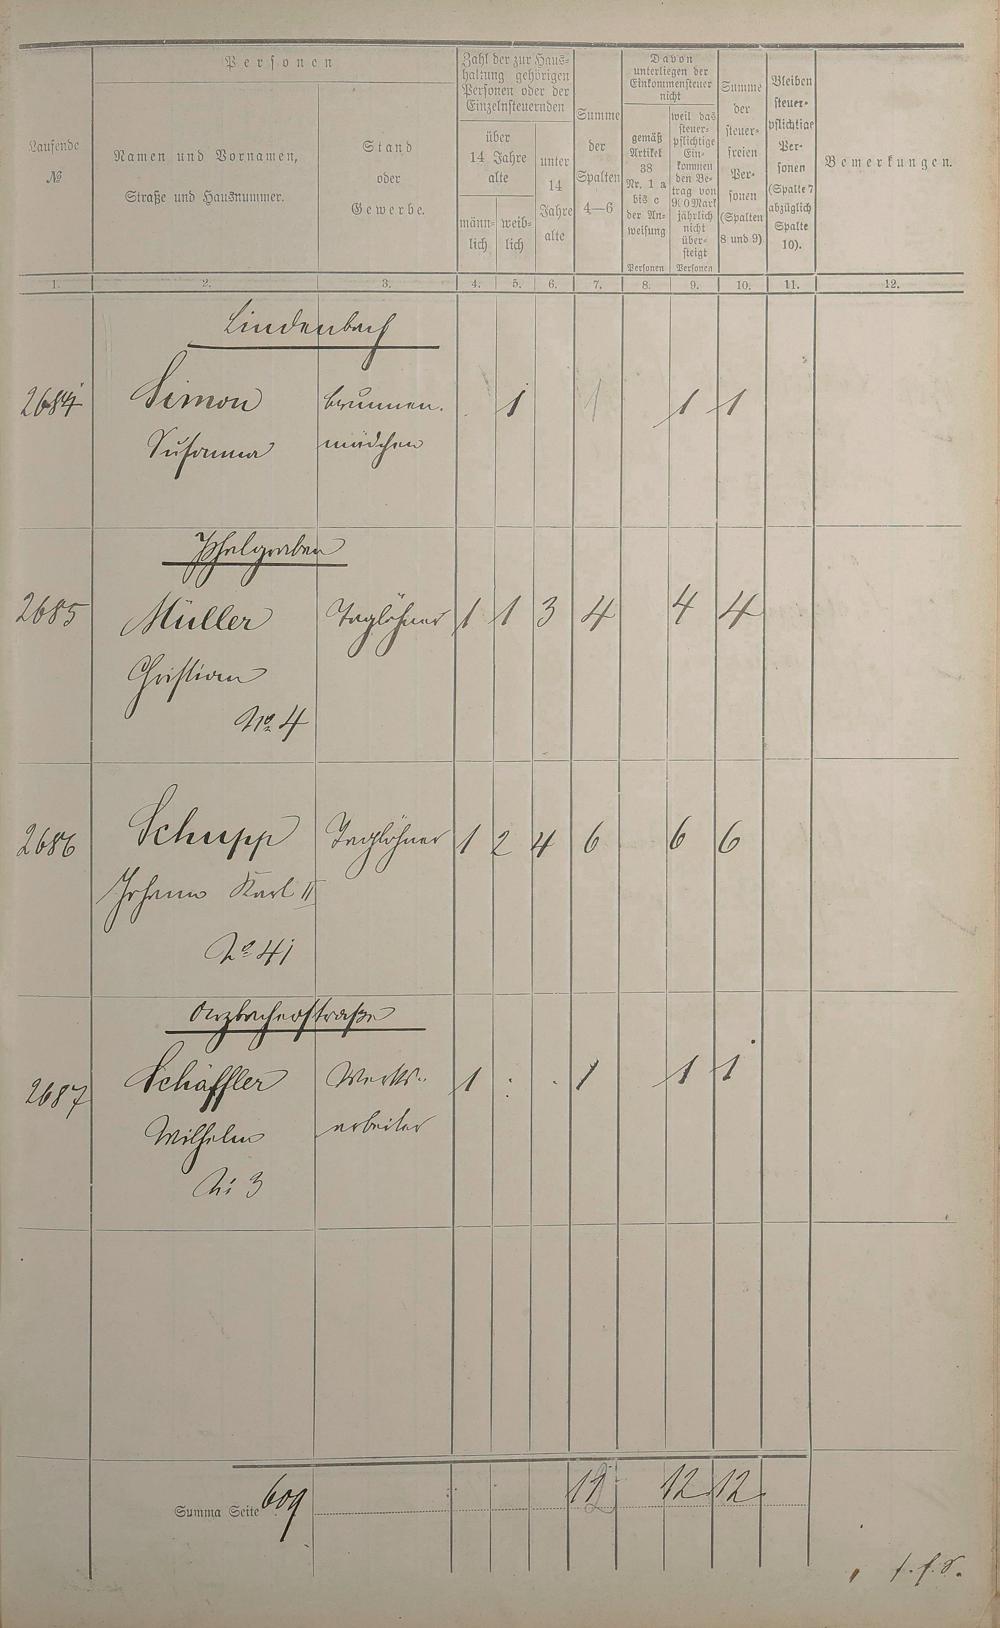 Laufende
№
Personen
Namen und Vornamen,
Straße und Hausnummer.
Stand
oder
Gewerbe.
Zahl der zur Haus-
haltung gehörigen
Personen oder der
Einzelnsteuernden
über
14 Jahre
alte
männ-
lich
weib-
lich
unter
14
Jahre
alte
Summe
der
Spalten
4—6
Davon
unterliegen der
Einkommensteuer
nicht
gemäß
Artikel
38
Nr. 1 a
bis c
der An-
weisung
Personen
weil das
steuer-
pflichtige
Ein-
kommen
den Be-
trag von
900 Mark
jährlich
nicht
über-
steigt
Personen
Summe
der
steuer-
freien
Per-
sonen
(Spalten
8 und 9)
Bleiben
steuer-
pflichtige
Per-
sonen
(Spalte 7
abzüglich
Spalte
10).
Bemerkungen.
1. 2. 3. 4. 5. 6. 7. 8. 9. 10. 11. 12.
Lindenbach
2684 Simon Brunnen. . 1 1 1 1
Susanna mädchen
Pfhelgraben
2685 Müller Taglöhner 1 1 3 4 4 4
Christian
No 4
2686 Schupp Taglöhner 1 2 4 6 6 6
Johann Karl II
No 41
Arzbacherstraße
2687 Schäffler Werks- 1 . . 1 1 1
Wilhelm arbeiter
No 3
Summa Seite 609 12 12 12